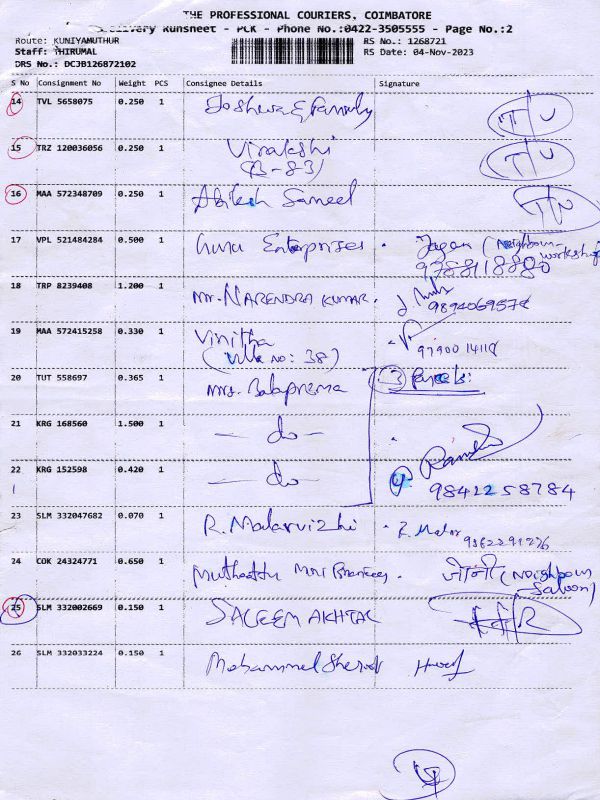 THE PROFESSIONAL COURIERS, COIMBATORE
Delivery Runsheet - PCK - Phone No.:0422-3505555 - Page No.:2
Route: KUNIYAMUTHUR RS No.: 1268721
Staff: THIRUMAL RS Date: 04-Nov-2023
DRS No.: DCJB126872102
S No Consignment No Weight PCS Consignee Details Signature
14 TVL 5658075 0.250 1 Joshwa & Family
15 TRZ 120036056 0.250 1 Virakshi
(B-83)
16 MAA 572348709 0.250 1 Abilesh Sameel
17 VPL 521484284 0.500 1 Guru Enterprises. Jagan (Neighbour
workshop)
9788118880
18 TRP 8239408 1.200 1 Mr. NARENDRA KUMAR.
9894069578
19 MAA 572415258 0.330 1 Vinitha
(Villa no: 38)
9790014118
20 TUT 558697 0.365 1 Mrs. Balaprema 3 Parcels:
21 KRG 168560 1.500 1 - do -
22 KRG 152598 0.420 1 - do -
9842258784
23 SLM 332047682 0.070 1 R. Malarvizhi R. Malar
9362291226
24 COK 24324771 0.650 1 Muthoottu Mini (Neighbour
Saloon)
25 SLM 332002669 0.150 1 SALEEM AKHTAL
26 SLM 332033224 0.150 1 Mohammed